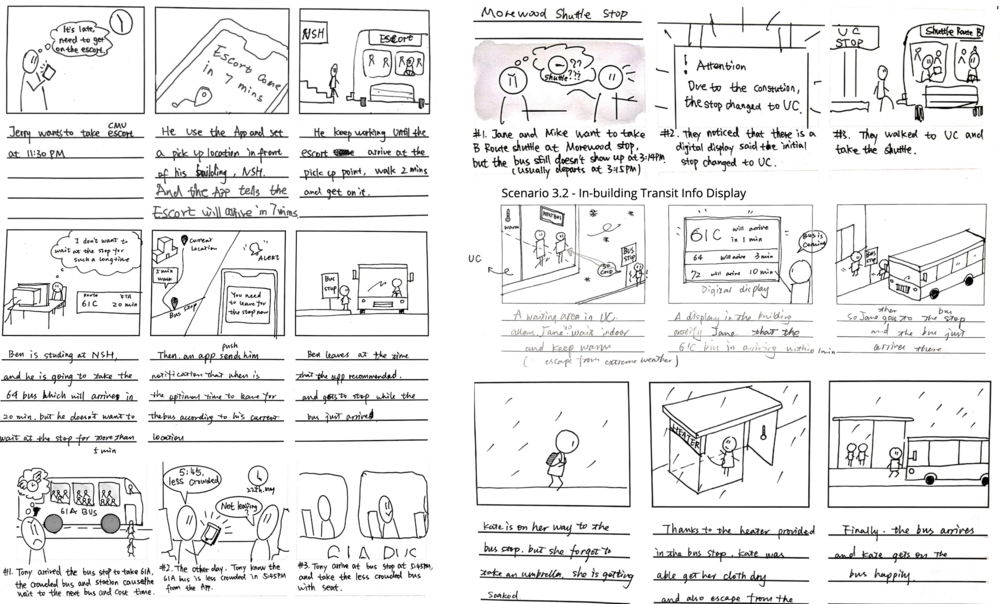 It's late,
need to get
on the escort.
Escort come
in 7 mins
NSH
Escort
Jerry wants to take CMU escort
at 11:30 PM
He use the App and set
a pick up location in front
of his building, NSH.
And the App tells the
Escort will arrive in 7 mins.
He keep working until the
escort arrive at the
pick up point, walk 2 mins
and get on it.
I don't want to
wait at the stop for
such a long time
ROUTE ETA
61C 20 min
Current
location
5 min
walk
Bus Stop
ALERT
You need
to leave for
the stop now
BUS
STOP
Ben is studing at NSH,
and he is going to take the
64 bus which will arrives in
20 min. but he doesn't want to
wait at the stop for more than
5 min
Then, an app sends him push
notification that when is
the optimum time to leave for
the bus according to his current
location
Ben leaves at the time
that the app recommended.
and goes to stop while the
bus just arrived
61A BUS
5:45,
less crowded
22th. may
Not leaving?
61A BUS
#1. Tony arrived the bus stop to take 61A,
the crowded bus and station cause the
wait to the next bus and cost time.
#2. The other day. Tony know the
61A bus is less crowded in 5:45pm
from the App.
#3. Tony arrive at bus stop at 5:45pm,
and take the less crowded bus
with seat.
Morewood Shuttle Stop
??
Shuttle???
! Attention
Due to the constution,
the stop changed to UC.
UC
STOP
Shuttle Route B
#1. Jane and Mike want to take
B Route shuttle at Morewood stop,
but the bus still doesn't show up at 3:14PM
(usually departs at 3:15PM)
#2. They noticed that there is a
digital display said the initial
stop changed to UC.
#3. They walked to UC and
take the shuttle.
Scenario 3.2 - In-building Transit Info Display
warm
NEXT BUS
UC
BUS
STOP
so
cold
61C will arrive
in 1 min
64 will arrive 3 min
72 will arrive 10 min
Digital display
Bus is
coming
BUS
STOP
A waiting area in UC.
allow Jane to wait indoor
and keep warm
( escape from extreme weather)
A display in the building
notify Jane that the
61C bus in arriving within 1 min
So Jane then goes to the bus stop
and the bus just
arrives there
HEATER
Kate is on her way to the
bus stop. but she forgot to
take an umbrella. she is getting
soaked
Thanks to the heater provided
in the bus stop. Kate was
able get her cloth dry
and also escape from the
Finally. the bus arrives
and Kate gets on the
bus happily.